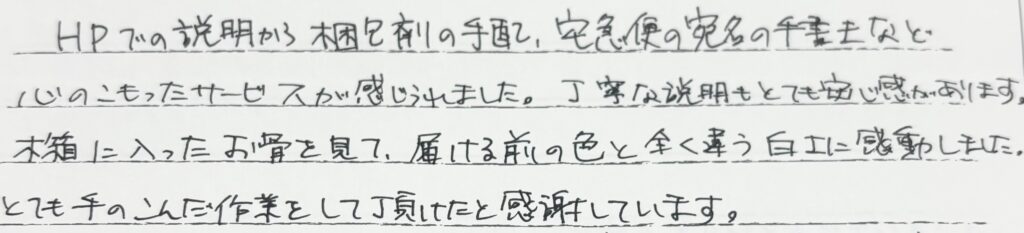 HPでの説明から梱包剤の手配、宅急便の宛名の手書きなど
心のこもったサービスが感じられました。丁寧な説明もとても安心感があります。
木箱に入ったお骨を見て、届ける前の色と全く違う白さに感動しました。
とても手のこんだ作業をして頂けたと感謝しています。